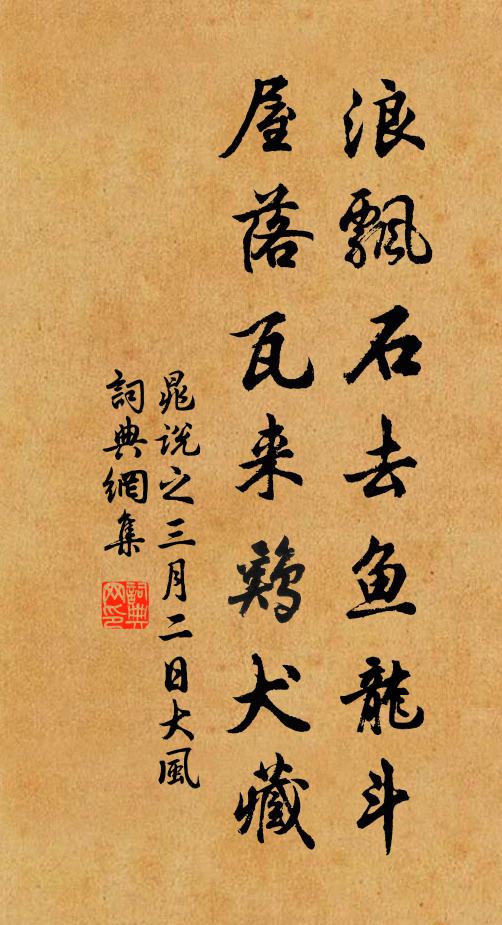 浪飄石去鱼龍斗
屋落瓦来鷄犬藏
晁说之三月二日大風
詞典網集
詞典网印